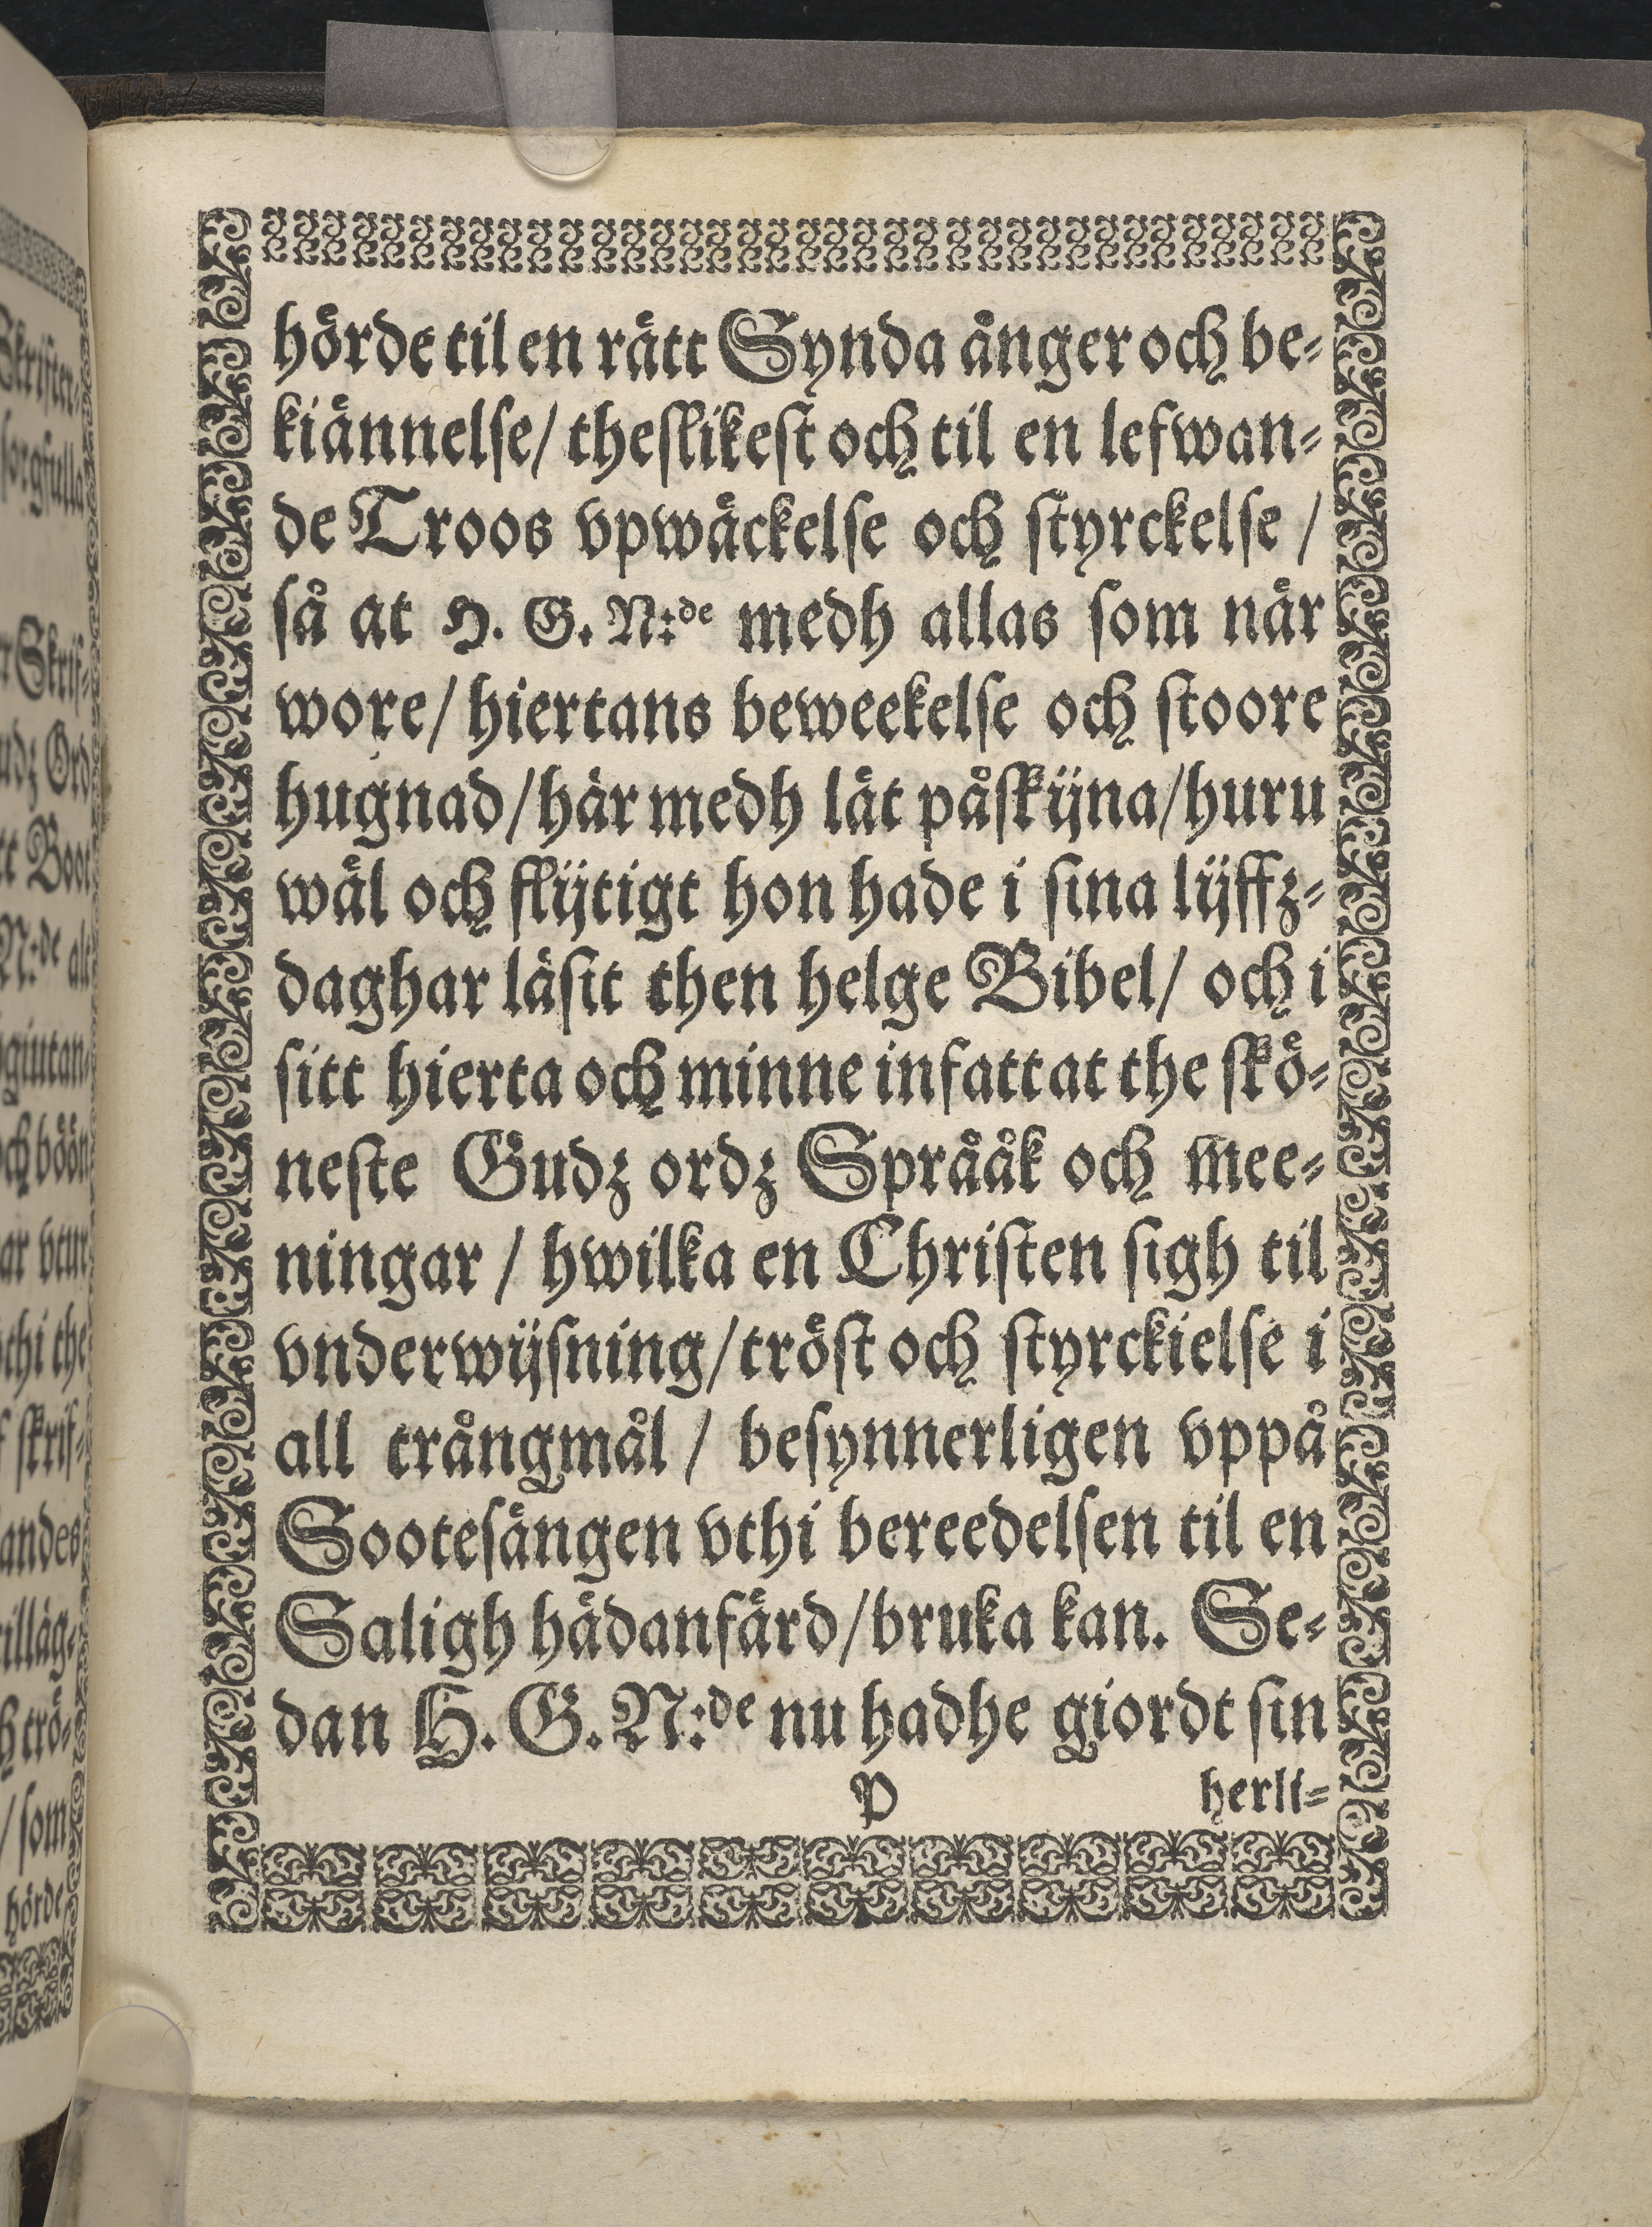 hörde til en rätt Synda ånger och be-
kiännelse/ theslikest och til en lefwan-
de Troos vpwäckelse och styrckelse /
så at H. G. N:de medh allas som när
wore/ hiertans beweekelse och stoore
hugnad/ här medh lät påskijna/ huru
wäl och flijtigt hon hade i sina lijffz-
daghar läsit then helge Bibel/ och i
sitt hierta och minne infattat the skö-
neste Gudz ordz Språåk och mee-
ningar / hwilka en Christen sigh til
vnderwijsning/ tröst och styrckielse i
all trångmål / besynnerligen vppå
Sootesängen vthi bereedelsen til en
Saligh hädanfärd/ bruka kan. Se-
dan H. G. N:de nu hadhe giordt sin
P herli-